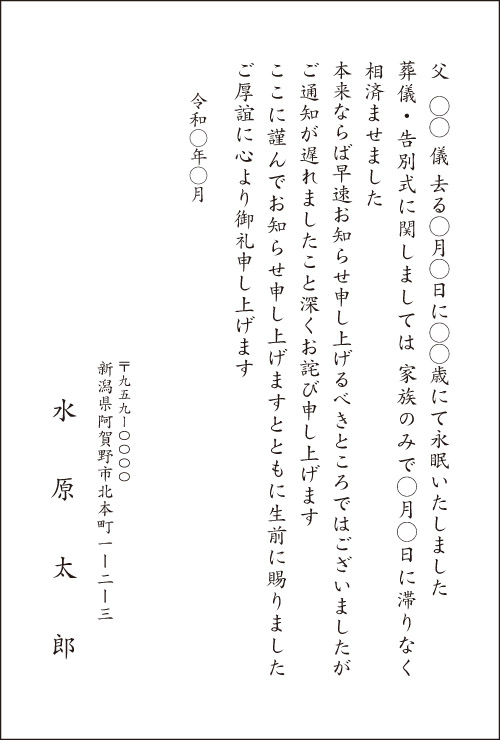 父　〇〇 儀 去る〇月〇日に〇〇歳にて永眠いたしました
葬儀・告別式に関しましては 家族のみで〇月〇日に滞りなく
相済ませました
本来ならば早速お知らせ申し上げるべきところではございましたが
ご通知が遅れましたこと深くお詫び申し上げます
ここに謹んでお知らせ申し上げますとともに生前に賜りました
ご厚誼に心より御礼申し上げます
令和〇年〇月
〒九五九ー〇〇〇〇
新潟県阿賀野市北本町一ー二ー三
水原太郎